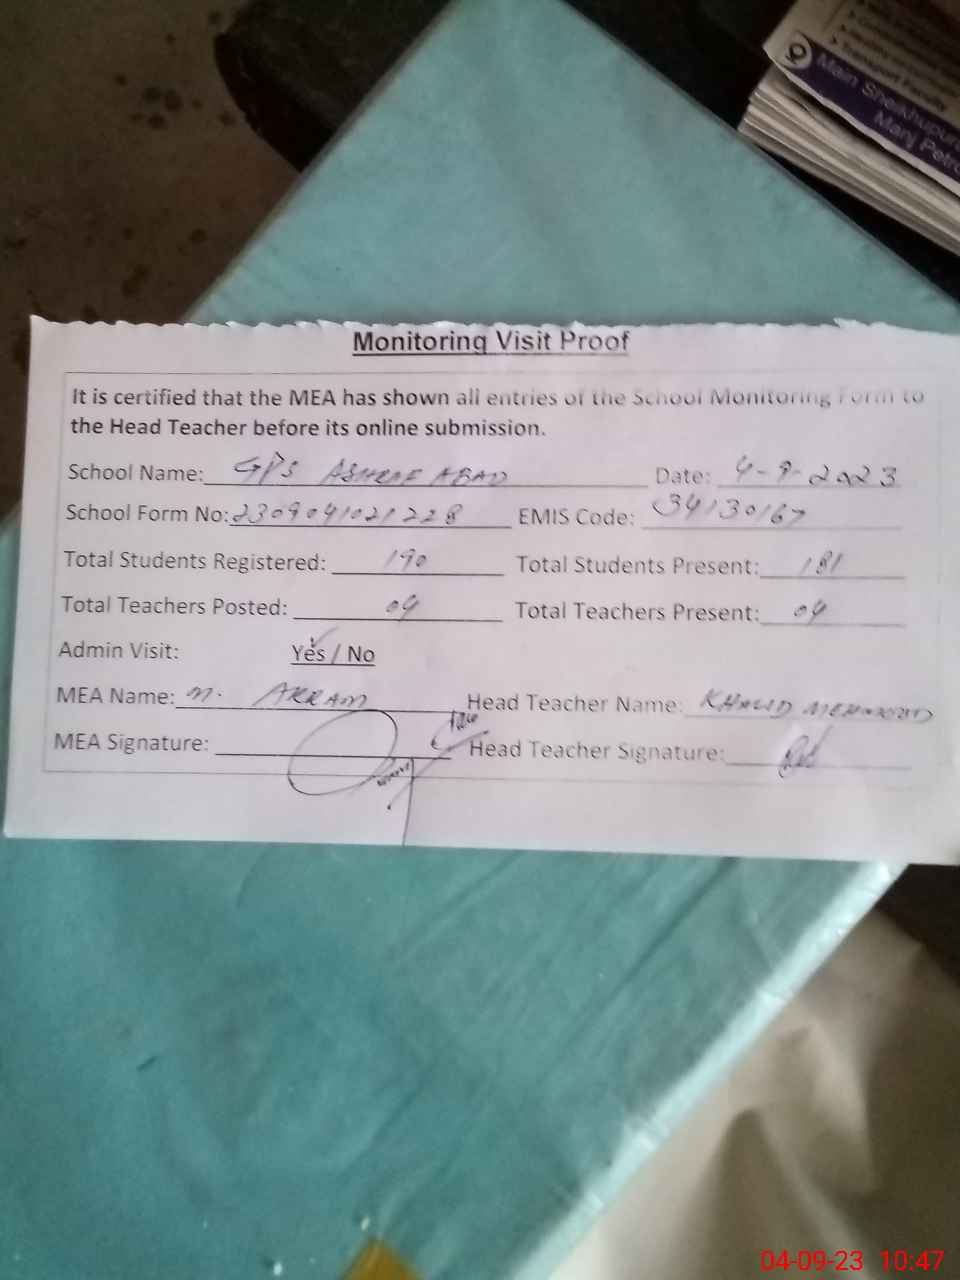 Main Sheikhupura
Manj Petro
Transport Faculty
Monitoring Visit Proof
It is certified that the MEA has shown all entries of the School Monitoring Form to
the Head Teacher before its online submission.
School Name: GPS ASHRAF ABAD Date: 4-9-2023
School Form No: 2309041021228 EMIS Code: 34130167
Total Students Registered: 190 Total Students Present: 181
Total Teachers Posted: 04 Total Teachers Present: 04
Admin Visit: Yes / No
MEA Name: M. AKRAM Head Teacher Name: KHALID MEHMOOD
MEA Signature: Head Teacher Signature:
04-09-23 10:47